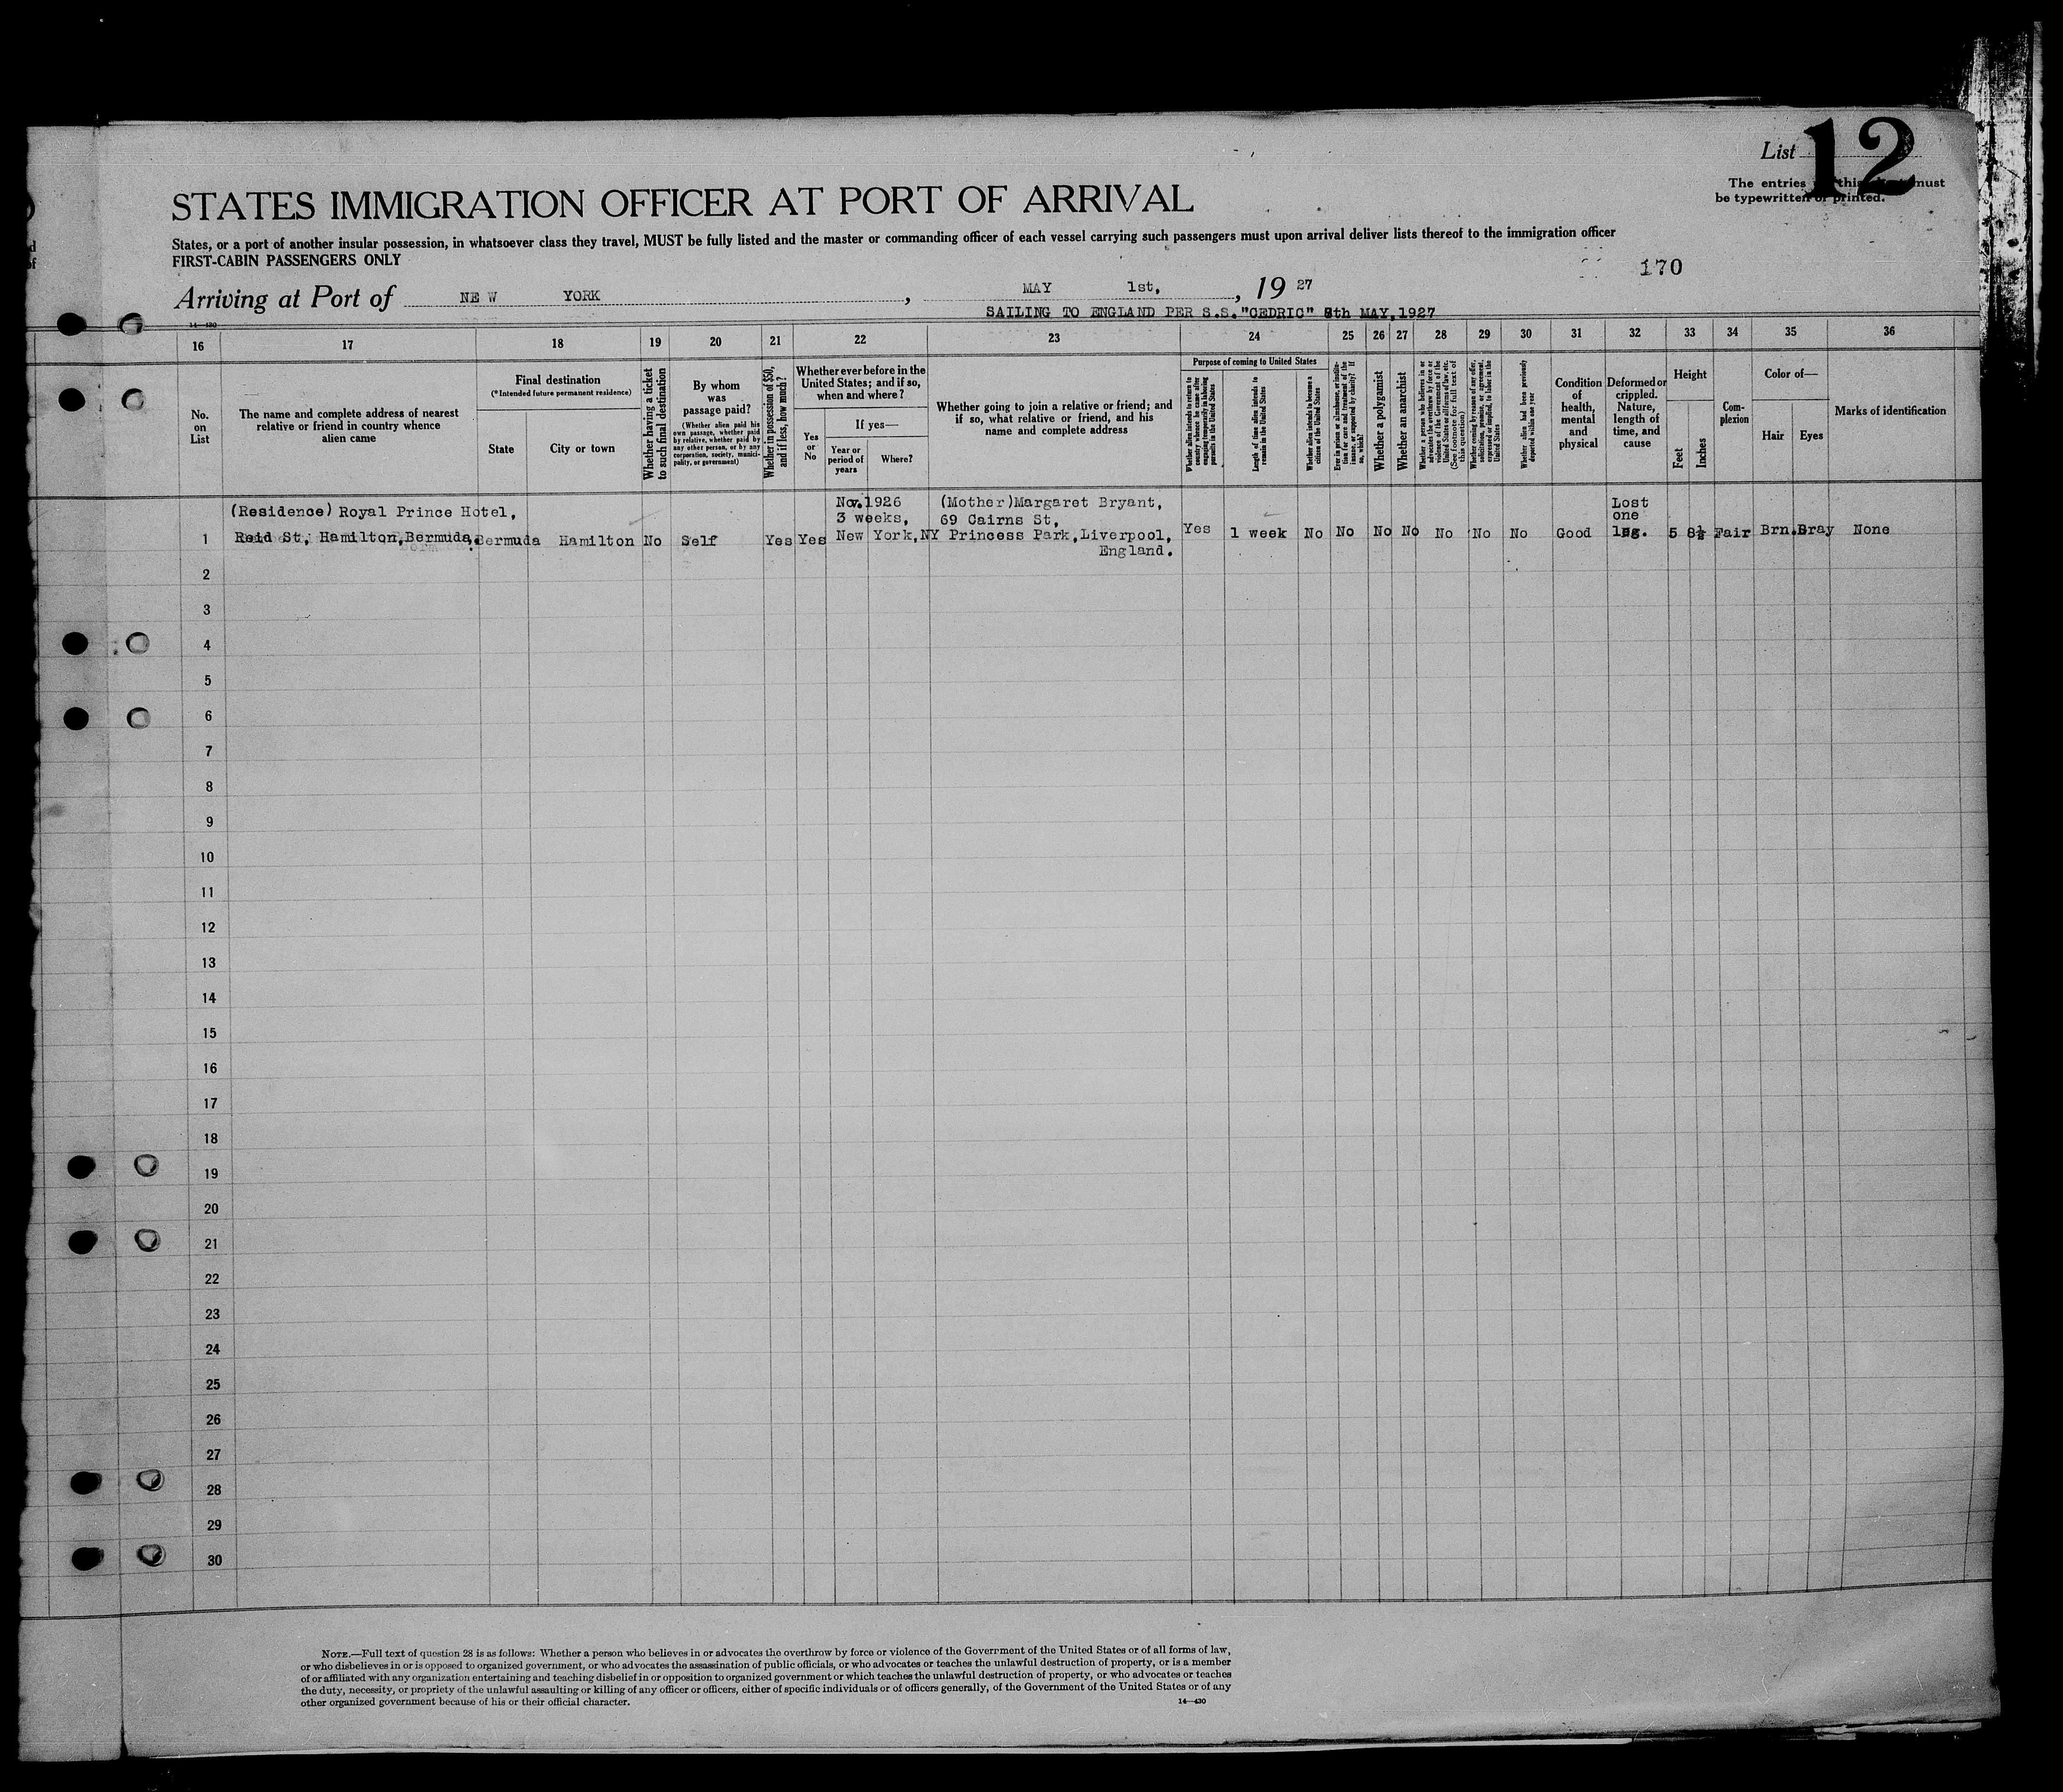 List 12
The entries this must
be typewritten or printed.
STATES IMMIGRATION OFFICER AT PORT OF ARRIVAL
States, or a port of another insular possession, in whatsoever class they travel, MUST be fully listed and the master or commanding officer of each vessel carrying such passengers must upon arrival deliver lists thereof to the immigration officer
FIRST-CABIN PASSENGERS ONLY
170
Arriving at Port of NEW YORK, MAY 1st, , 19 27
SAILING TO ENGLAND PER S.S."CEDRIC" 8th MAY,1927
14—430
16 17 18 19 20 21 22 23 24 25 26 27 28 29 30 31 32 33 34 35 36
No.
on
List
The name and complete address of nearest
relative or friend in country whence
alien came
Final destination
(*Intended future permanent residence)
State
City or town
Whether having a ticket
to such final destination
By whom
was
passage paid?
(Whether alien paid his
own passage, whether paid
by relative, whether paid by
any other person, or by any
corporation, society, munici-
pality, or government)
Whether in possession of $50,
and if less, how much?
Whether ever before in the
United States; and if so,
when and where?
Yes
or
No
If yes—
Year or
period of
years
Where?
Whether going to join a relative or friend; and
if so, what relative or friend, and his
name and complete address
Purpose of coming to United States
Whether alien intends to return to
country whence he came after
engaging temporarily in laboring
pursuits in the United States
Length of time alien intends to
remain in the United States
Whether alien intends to become a
citizen of the United States
Ever in prison or almshouse, or institu-
tion for care and treatment of the
insane, or supported by charity? If
so, which?
Whether a polygamist
Whether an anarchist
Whether a person who believes in or
advocates the overthrow by force or
violence of the Government of the
United States or all forms of law, etc.
(See footnote for full text of
this question)
Whether coming by reason of any offer,
solicitation, promise, or agreement,
expressed or implied, to labor in the
United States
Whether alien had been previously
deported within one year
Condition
of
health,
mental
and
physical
Deformed or
crippled.
Nature,
length of
time, and
cause
Height
Feet
Inches
Com-
plexion
Color of—
Hair
Eyes
Marks of identification
(Residence) Royal Prince Hotel, Nov.1926 (Mother)Margaret Bryant, Lost
3 weeks, 69 Cairns St, one
1 Reid St, Hamilton,Bermuda, Bermuda Hamilton No Self Yes Yes New York,NY Princess Park,Liverpool, Yes 1 week No No No No No No No Good leg. 5 8½ Fair Brn. Gray None
England.
2
3
4
5
6
7
8
9
10
11
12
13
14
15
16
17
18
19
20
21
22
23
24
25
26
27
28
29
30
NOTE.—Full text of question 28 is as follows: Whether a person who believes in or advocates the overthrow by force or violence of the Government of the United States or of all forms of law,
or who disbelieves in or is opposed to organized government, or who advocates the assassination of public officials, or who advocates or teaches the unlawful destruction of property, or is a member
of or affiliated with any organization entertaining and teaching disbelief in or opposition to organized government or which teaches the unlawful destruction of property, or who advocates or teaches
the duty, necessity, or propriety of the unlawful assaulting or killing of any officer or officers, either of specific individuals or of officers generally, of the Government of the United States or of any
other organized government because of his or their official character.
14—430